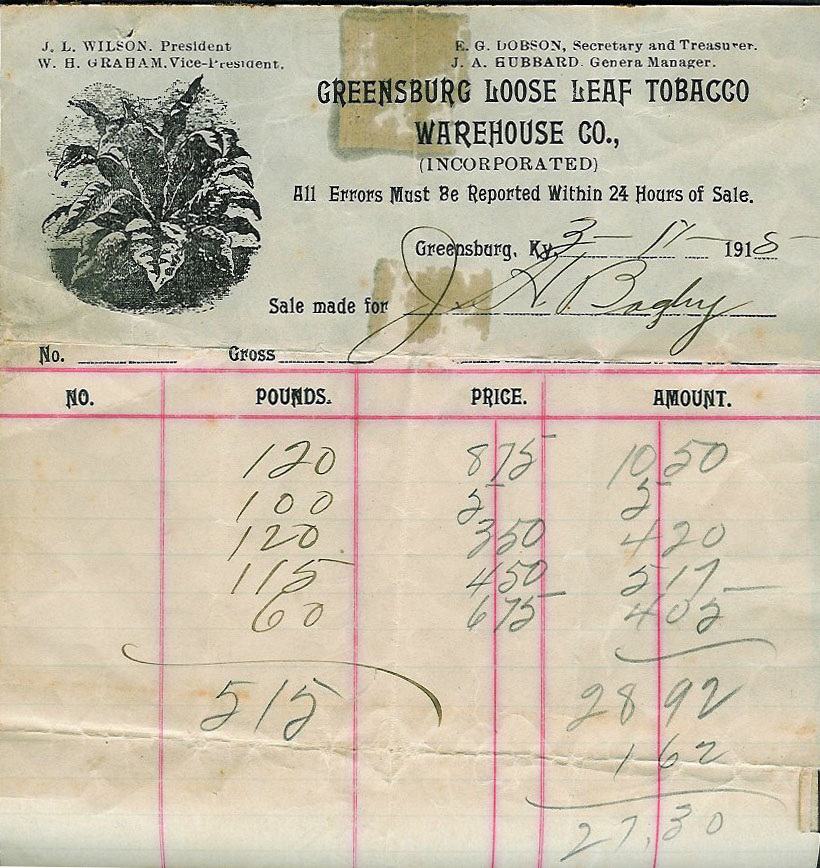 J. L. WILSON. President
W. H. GRAHAM, Vice-President.
E. G. DOBSON, Secretary and Treasurer.
J. A. HUBBARD. Genera Manager.
GREENSBURG LOOSE LEAF TOBACCO
WAREHOUSE CO.,
(INCORPORATED)
All Errors Must Be Reported Within 24 Hours of Sale.
Greensburg, Ky. 3-17-1915
Sale made for J. A. Bagby
No. Gross
NO. POUNDS. PRICE. AMOUNT.
120 875 1050
100 5 5
120 350 420
115 450 517
60 675 405
515 2892
162
27.30